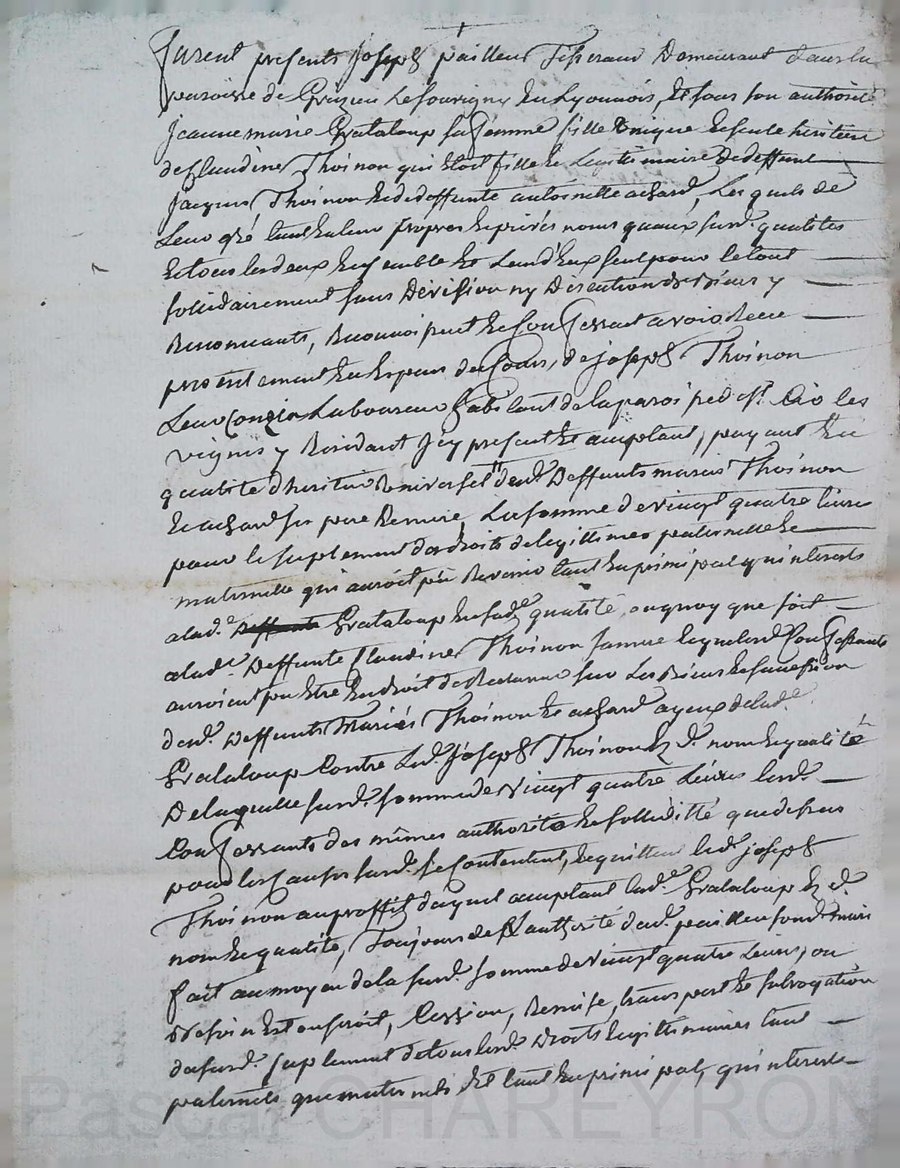 furent presents Joseph pailleu Tisserand Demeurant dans la
paroisse de Grezieu Le souvigny En Lyonnois, Et sous son authorité
Jeanne marie Grataloup sa femme fille Unique Et seule heritiere
de Claudine Thoinon qui Etoit fille Et Legitimaire De deffunt
Jacques Thoinon Et de deffunte antoinette achard, Les quels de
Leur gré tant En leur propres Et privés noms qu'aux surd. qualites
Et tous les deux Ensemble Et L'un d'Eux seul pour le tout
sollidairement sans Division ny Discution des biens y
Renonceants, Reconnoissent Et Confessent avoir Receu
presentement En Especes du Cours, de Joseph Thoinon
Leur Cousin Laboureur habitant de la paroisse de
vignes y Residant Icy present Et acceptant, payant En
qualité d'heritier Universel desd. Deffunts mariés Thoinon
Et achard ses pere Et mere, La somme de vingt quatre livres
pour le suplement des droits de legittimes paternelle Et
maternelle qui auroit pu Revenir tant En principal qu'interests
a lad. Grataloup En sad. qualité, ou quoy que soit
a lad. Deffunte Claudine Thoinon sa mere Et que lesd. Confessants
auroient pu Etre En droit de Reclamer sur Les Biens Et succession
desd. Deffunts Mariés Thoinon Et achard ayeux de lad.
Grataloup Contre Led. Joseph Thoinon Esd. nom Et qualité
De laquelle surd. somme de vingt quatre Livres lesd.
Confessants des mêmes authorité Et sollidité que dessus
pour les causes surd. se Contentent, Et quittent led. joseph
Thoinon au proffit duquel acceptant lad. Grataloup Esd.
nom Et qualité, Toujours de l'authorité dud. pailleu sond. mari
fait au moyen de la surd. somme de vingt quatre Livres, ou
de soin Est ou seroit, Cession, Remise, transport Et subrogation
du surd. suplement de tous lesd. Droits legittimaires tant
paternels que maternels Et tant En principal, qu'interests
Pascal CHAREYRON